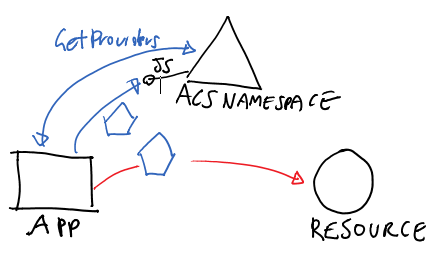 GetProviders
JS
ACS NAMESPACE
APP
RESOURCE